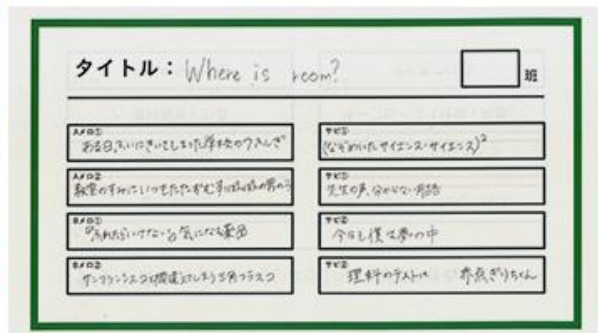 タイトル：Where is room?
班
Aメロ①
ある日ふいにきいてしまった学校の7ふしぎ
Aメロ②
教室のすみにいつもたたずむ男の子
Bメロ①
「ふれたらいけない」と気になる薬品
Bメロ②
サンフランシスコと間違えてしまう三角フラスコ
サビ①
(なぞめいたサイエンス・サイエンス)²
サビ①
先生の声、分からない用語
サビ②
今日も僕は夢の中
サビ②
理科のテストは 赤点ぎりちょん